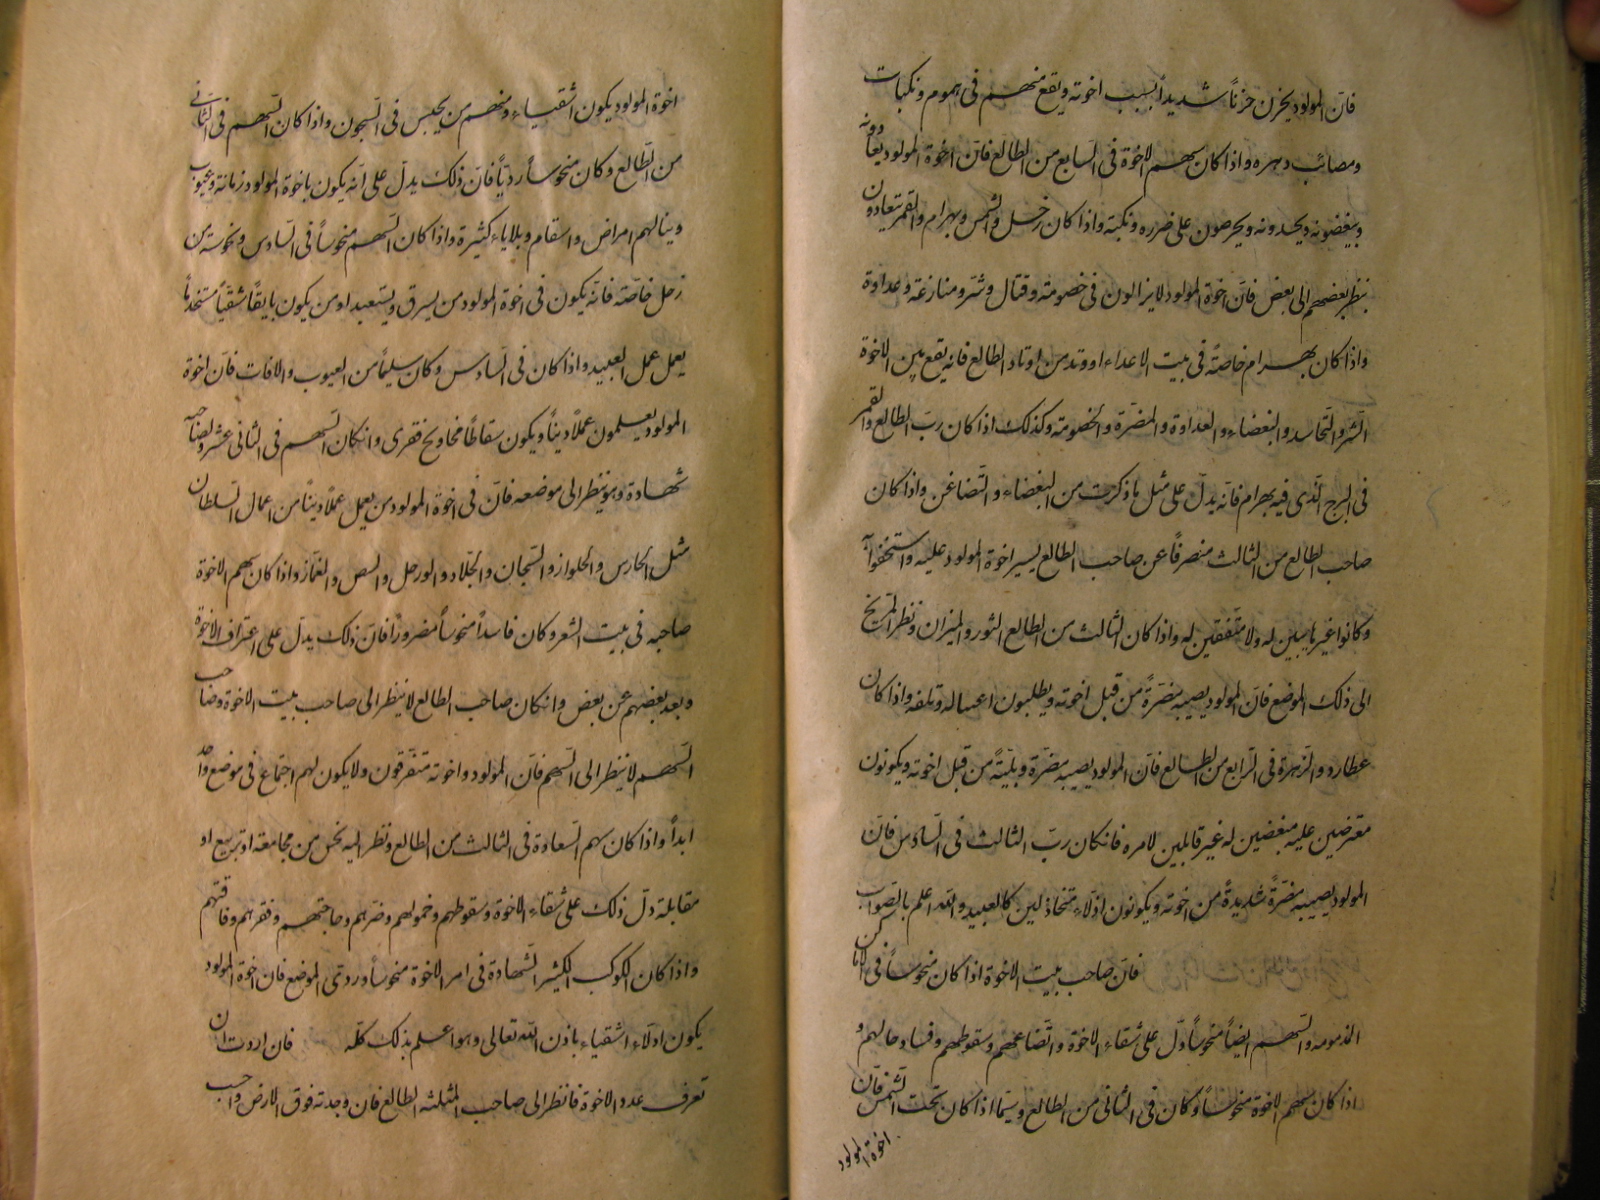 فانّ المولود يحزن حزناً شديداً بسبب اخوته ويقع منهم فى هموم ونكبات
ومصائب دهره واذا كان سهم الاخوة فى السابع من الطالع فانّ اخوة المولود يعادونه
ويبغضونه ويحسدونه ويحرصون على ضرره ونكبته واذا كان زحل والشمس وبهرام والقمر يتعادون
ينظر بعضهم الى بعض فانّ اخوة المولود لا يزالون فى خصومة وقتال وشر ومنازعة وعداوة
واذا كان بهرام خاصّة فى بيت الاعداء او وتد من اوتاد الطالع فانه يقع بين الاخوة
الشر والتحاسد والبغضاء والعداوة والمضرّة والخصومة وكذلك اذا كان ربّ الطالع والقمر
فى البرج الّذى فيه بهرام فانّه يدلّ على مثل ما ذكرت من البغضاء والتضاغن واذا كان
صاحب الطالع من الثالث منصرفاً عن صاحب الطالع يسير اخوة المولود عليه واستخفوا به
وكانوا غير مايلين له ولا متفقين له واذا كان الثالث من الطالع الثور والميزان ونظر المريخ
الى ذلك الموضع فانّ المولود يصيبه مضرّة من قبل اخوته ويطلبون اغتياله وتلفه واذا كان
عطارد والزهرة فى الرابع من الطالع فانّ المولود يصيبه مضرّة وبليّة من قبل اخوته ويكونون
معترضين عليه مبغضين له غير قابلين لامره فانكان ربّ الثالث فى السادس فانّ
المولود يصيبه مضرّة شديدة من اخوته ويكونون اذلاء متخاذلين كالعبيد والله اعلم بالصواب
فانّ صاحب بيت الاخوة اذا كان منحوساً فى الاماكن
المذمومه والسهم ايضاً منحوساً دلّ على شقاء الاخوة واتّضاعهم وسقوطهم وفساد حالهم و
اذا كان سهم الاخوة منحوساً وكان فى الثانى من الطالع وسيما اذا كان تحت الشمس فانّ
اخوة المولود
اخوة المولود يكون اشقياء ومنهم من يحبس فى السجون واذا كان السهم فى الثانى
من الطالع وكان منحوساً ردياً فانّ ذلك يدلّ على انّه يكون باخوة المولود زمانة وعيوب
وينالهم امراض واسقام وبلاياء كثيرة واذا كان السهم منحوساً فى السادس ونحوسته من
زحل خاصّة فانّه يكون فى اخوة المولود من يسرق ويستعبد او من يكون شقيّاً مستخدماً
يعمل عمل العبيد واذا كان فى السادس وكان سليماً من العيوب والافات فانّ اخوة
المولود يعملون عملاً دنيّاً ويكون سقاطاً محاويج فقرى وانكان السهم فى الثانى عشر ولصاحبه
شهادة وهو ينظر الى موضعه فانّ فى اخوة المولود من يعمل عملاً دنيّاً من اعمال السلطان
مثل الحارس والجلواز والسجان والجلاد واللص والغمّاز واذا كان سهم الاخوة
صاحبه فى بيت الشعر وكان فاسداً منحوساً مضروراً فانّ ذلك يدلّ على اغتراف الاخوة
وبعد بعضهم عن بعض وانكان صاحب الطالع لا ينظر الى صاحب بيت الاخوة وصاحب
السهم لا ينظر الى السهم فانّ المولود واخوته متفرقون ولا يكون لهم اجتماع فى موضع واحد
ابداً واذا كان سهم السعادة فى الثالث من الطالع ونظر اليه نحس من مجامعة او تربيع او
مقابلة دلّ ذلك على شقاء الاخوة وسقوطهم وخمولهم وضرّهم وحاجتهم وفقرهم وفاقتهم
واذا كان الكوكب الكثير الشهادة فى امر الاخوة منحوساً وردى الموضع فان اخوة المولود
يكون اذلّاء اشقياء باذن الله تعالى وهو اعلم بذلك كلّه فان اردت ان
تعرف عدد الاخوة فانظر الى صاحب المثلثه الطالع فان وجدته فوق الارض واحب